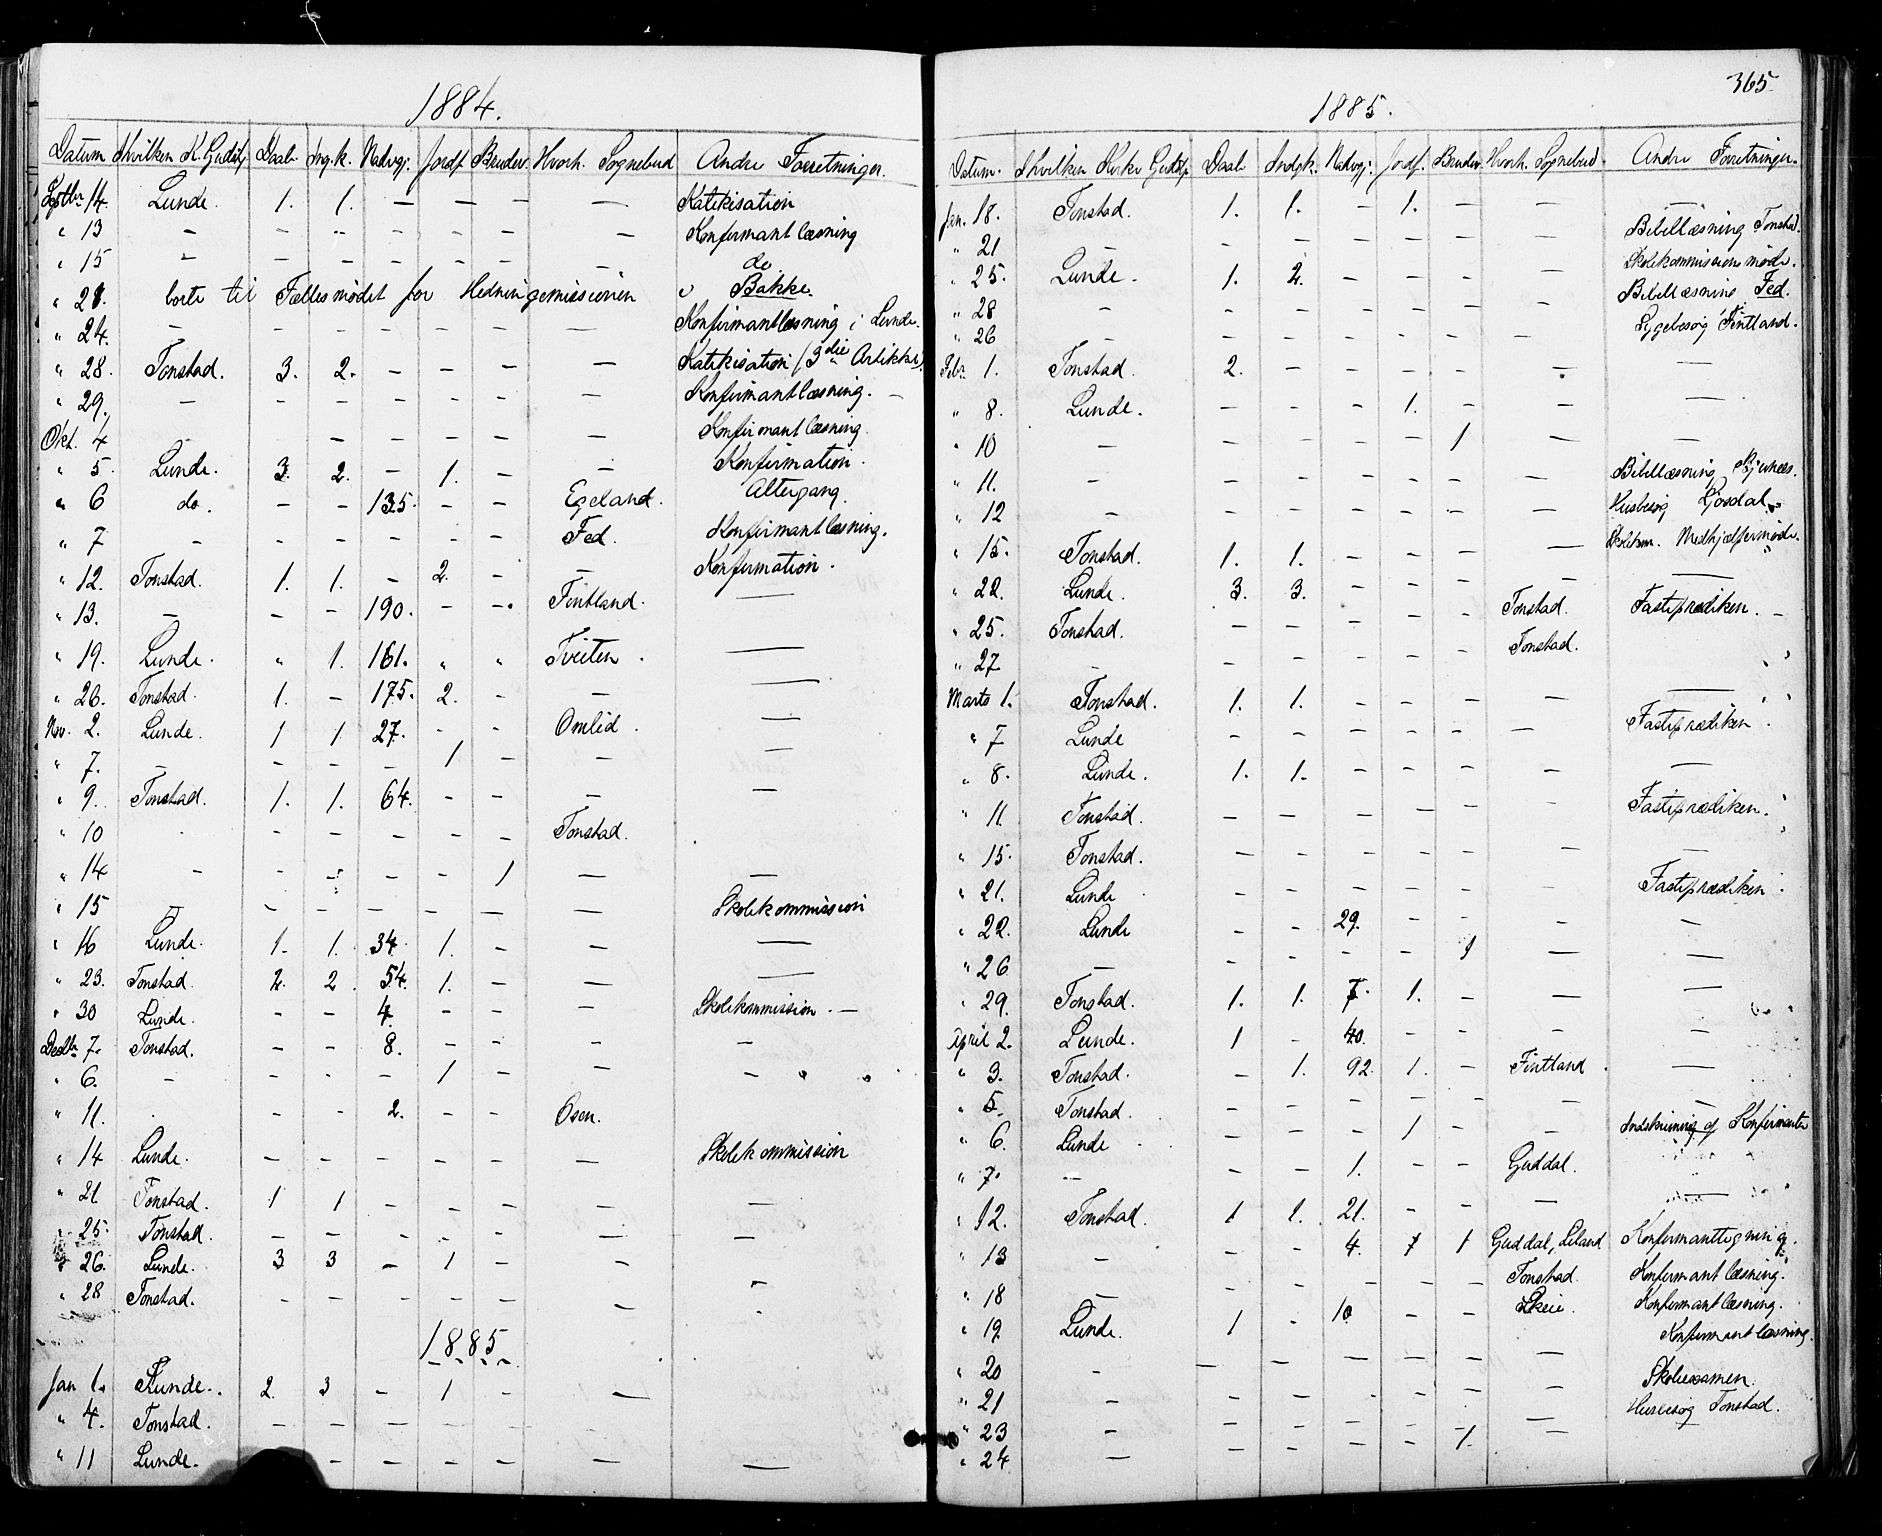 1884.
Datum Hvilken K. Gudstj. Daab Ing. k. Nadvgj. Jordf. Brudev. Hvorh. Sognebud Andre Forretninger.
Septbr 14. Lunde. 1. 1. — — — — Katekisation
" 13 — — — — — — — Konfirmantlæsning
" 15 — — — — — — — do
" 21. borte til Fællesmødet for Hedningemissionen i Bakke.
" 24. — Konfirmantlæsning i Lunde.
" 28. Tonstad. 3. 2. — — — — Katekisation (3die Artikkel)
" 29. — — — — — — — Konfirmantlæsning. —
Okt. 4 — — — — — — Konfirmantlæsning
" 5. Lunde. 3. 2. — 1. — — Konfirmation.
" 6 do. — — 135. — — Egeland. Altergang.
" 7 — — — — — — Fed. Konfirmantlæsning.
" 12. Tonstad. 1. 1. — 2. — — Konfirmation.
" 13. — — — 190. — — Fintland. —
" 19. Lunde. " 1. 161. " " Tveiten. —
" 26. Tonstad. 1. — 175. 2. — — —
Nov. 2. Lunde. 1 1 27. — — Omlid. —
" 7. — — — — 1 — — —
" 9. Tonstad. 1. 1. 64. — — — —
" 10 — — — — — — Tonstad.
" 14 — — — — — 1 — —
" 15 — — — — — — — Skolekommission
" 16 Lunde. 1. 1. 34. 1. — — —
" 23. Tonstad. 2. 2. 54. 1. — — —
" 30 Lunde. — — 4. — — — Skolekommission. —
Decbr 7. Tonstad. — — 8. — — — —
" 6. — — — — 1 — — —
" 11. — — 2. — — Osen.
" 14 Lunde. — — — — — — Skolekommission
" 21 Tonstad. 1 1 — — — — —
" 25. Tonstad. — — — — — — —
" 26. Lunde. 3 3 — 1 — — —
" 28 Tonstad. — — — — — — —
1885
Jan 1. Lunde. 2. 3 — 1 — —
" 4. Tonstad. — — — — — — —
" 11 Lunde. — — — — — —
365
1885.
Datum. Hvilken Kirke Gudstj. Daab Indgk. Nadvgj. Jordf. Brudev. Hvorh. Sognebud. Andre Forretninger.
Jan. 18. Tonstad. 1. 1. — 1. — — —
" 21 — — — — — — — Bibellæsning Tonstad.
" 25. Lunde. 1. 2. — — — — Skolekommissionsmøde.
" 28 — — — — — — — Bibellæsning Fed.
" 26 — — — — — — — Sygebesøg Fintland.
Febr. 1. Tonstad. 2. — — — — — —
" 8. Lunde. — — — 1. — — —
" 10 — — — — — 1 — —
" 11. — — — — — — — Bibellæsning
" 12 — — — — — — — Husbesøg Josdal
" 15. Tonstad. 1. 1. — — — — Medhjælpermøde.
" 22. Lunde. 3. 3. — — — — —
" 25. Tonstad. — — — — — Tonstad. Fasteprædiken. —
" 27 — — — — — — Tonstad.
Marts 1. Tonstad. 1. 1. — — — — —
" 7 Lunde — — — — — — Fasteprædiken.
" 8. Lunde. 1. 1. — — — — —
" 11 Tonstad. — — — — — — Fasteprædiken.
" 15. Tonstad. — — — — — — —
" 21. Lunde — — — — — — Fasteprædiken
" 22. Lunde — — 29. — — — —
" 26 — — — — — 1 — —
" 29. Tonstad. 1. 1. 7. 1. — — —
April 2. Lunde. 1 — 40. — — — —
" 3. Tonstad. — 1. 92. 1. — Fintland. —
" 5. Tonstad. — — — — — — —
" 6. Lunde — — — 1 — — Indskrivning af Konfirmanter
" 7. — — — 1. — — Guddal.
" 12. Tonstad. 1 1. 21. — — — —
" 13 — — — 4. 1 1 Guddal, Liland Konfirmanttegning.
" 18 — — — — — — Tonstad. Konfirmantlæsning.
" 19. Lunde. 1 — 10 — — Skeie. Konfirmantlæsning.
" 20 — — — — — — — Konfirmantlæsning.
" 21 — — — — — — — Skoleexamen.
" 23 — — — — — — — Husbesøg Tonstad.
" 24 — — — — — 1.